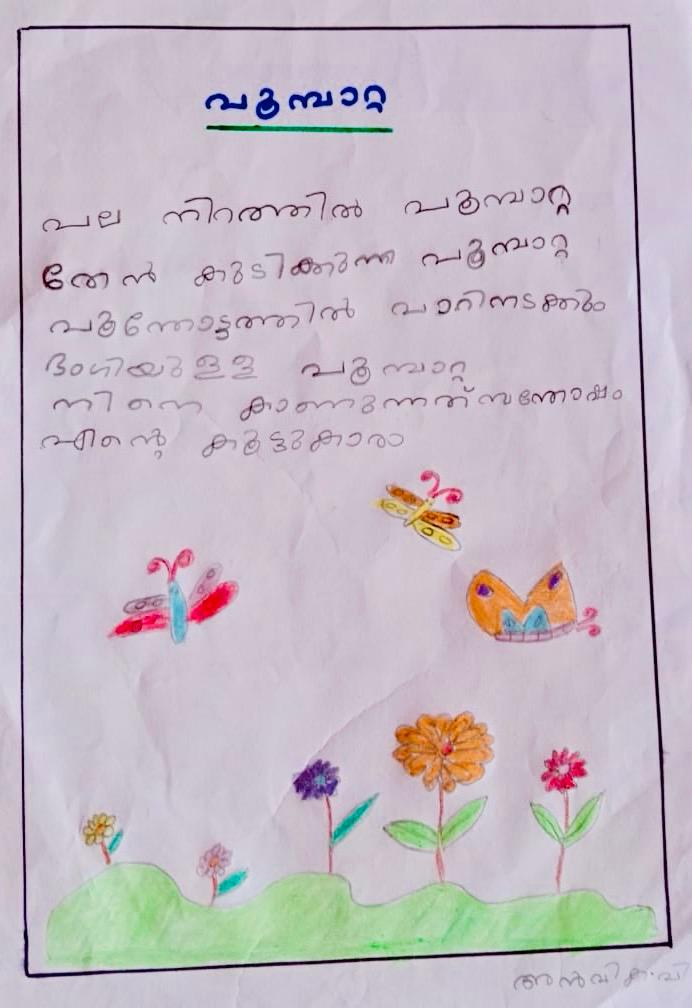 പൂമ്പാറ്റ
പല നിറത്തിൽ പൂമ്പാറ്റ
തേൻ കുടിക്കുന്ന പൂമ്പാറ്റ
പൂന്തോട്ടത്തിൽ പാറിനടക്കും
ഭംഗിയുള്ള പൂമ്പാറ്റ
നിന്നെ കാണുന്നത് സന്തോഷം
എന്റെ കൂട്ടുകാരാ
അൻവിക.വി